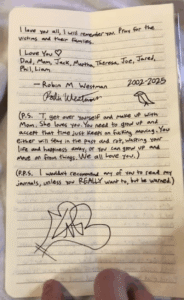 I love you all, I will remember you. Pray for the
victims and their families.
I Love You ♡
Dad, Mom, Jack, Martha, Theresa, Joe, Jared,
Phil, Liam
— Robin M. Westman 2002-2025
Robin Westman
(P.S. T, get over yourself and make up with
Mom. She loves you. You need to grow up and
accept that time just keeps on fucking moving. You
either will stay in the past and rot, wasting your
life and happiness away, or you can grow up and
move on from things. We all love you.)
(P.P.S. I wouldn't recommend any of you to read my
journals, unless you REALLY want to, but be warned.)